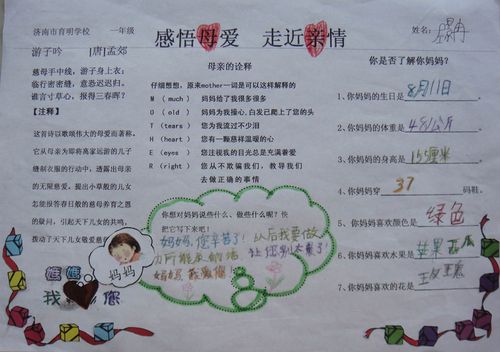 济南市育明学校 一年级
感悟母爱 走近亲情
姓名：
游子吟 [唐]孟郊
慈母手中线，游子身上衣；
临行密密缝，意恐迟迟归。
谁言寸草心，报得三春晖？
【注释】
这首诗以歌颂伟大的母爱而著称。
它从母亲为即将离家远游的儿子
缝制衣服的行动中，透露出母亲
的无限慈爱，提出小草般的儿女
怎能报答春日般的慈母养育之恩
的疑问，引起天下儿女的共鸣，
拨动了天下儿女敬爱慈
母亲的诠释
仔细想想，原来mother一词是可以这样解释的
M (much) 妈妈给了我很多很多
O (old) 妈妈为我操心，白发已爬上了您的头
T (tears) 您为我流过不少泪
H (heart) 您有一颗慈祥温暖的心
E (eyes) 您注视我的目光总是充满着爱
R (right) 您从不欺骗我们，教导我们
去做正确的事情
你想对妈妈说些什么、做些什么呢？快
把它写下来吧！
妈妈，您辛苦了！以后我要做
力所能及的活 让您别太累了！
妈妈，我爱您！
妈妈
妈妈
我 您
你是否了解你妈妈？
1、你妈妈的生日是 8月11日
2、你妈妈的体重是 48公斤
3、你妈妈的身高是 155厘米
4、你妈妈穿 37 码鞋。
5、你妈妈喜欢颜色是 绿色
6、你妈妈喜欢水果是 苹果 西瓜
7、你妈妈喜欢的花是